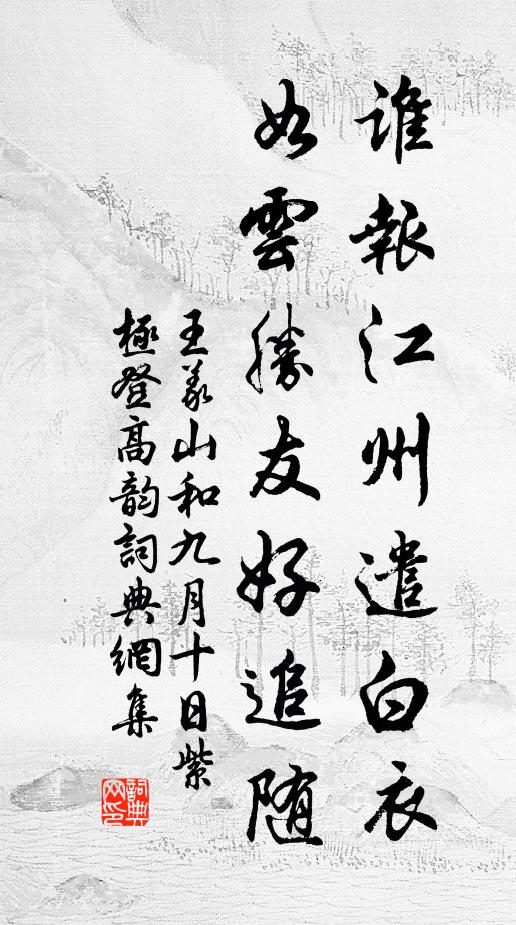 誰報江州遣白衣
如雲勝友好追随
王义山和九月十日紫
極登高韵詞典網集
詞典網印